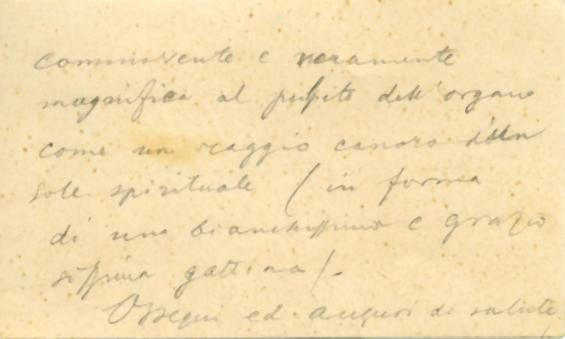 commovente e veramente
magnifica al pulpito dell'organo
come un raggio canoro d'un
sole spirituale (in forma
di una bianchissima e grazio
sissima gattina).
Ossequi ed auguri di salute